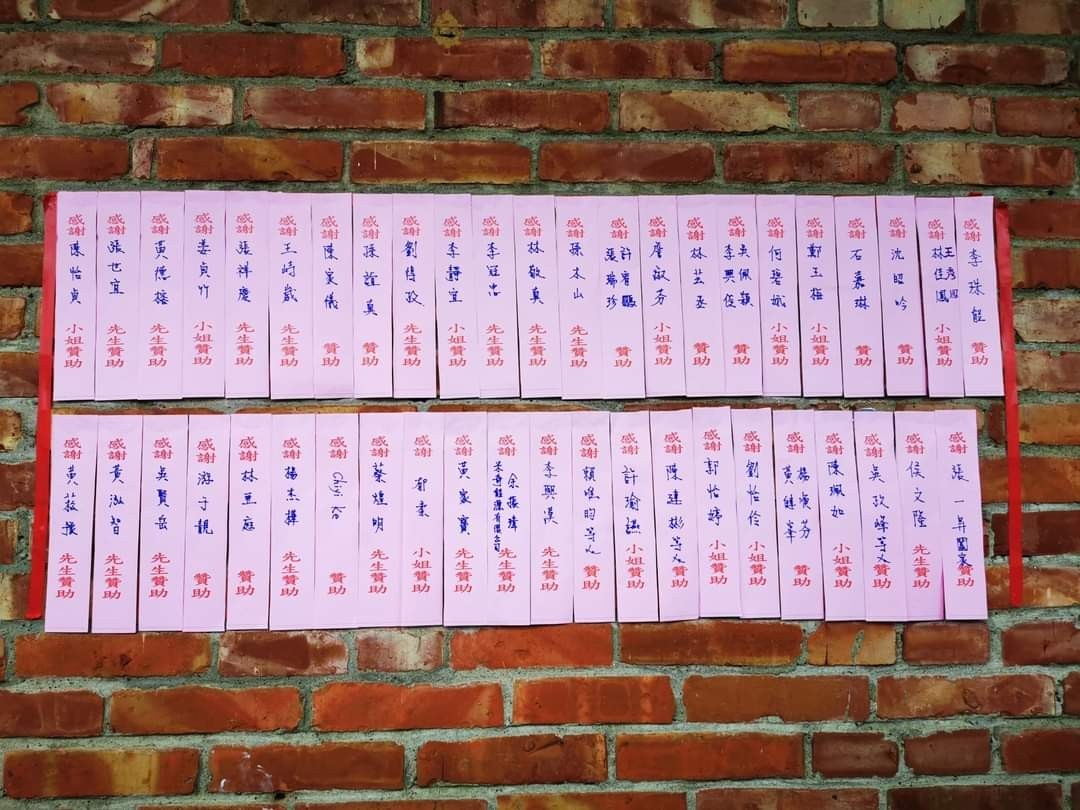 感謝 李珠 贊助
感謝 王秀 林佳鳳 贊助
感謝 沈昭吟 贊助
感謝 石慕琳 贊助
感謝 鄭玉梅 贊助
感謝 何碧娥 小姐贊助
感謝 吳佩穎 李興俊 贊助
感謝 林芸丞 贊助
感謝 詹淑芬 小姐贊助
感謝 許宥 張瑞珍 贊助
感謝 孫本山 先生贊助
感謝 林敬真 贊助
感謝 李冠志 先生贊助
感謝 李靜宜 小姐贊助
感謝 劉政 贊助
感謝 孫誼真 贊助
感謝 陳家儀 小姐贊助
感謝 王時崴 先生贊助
感謝 張祥慶 先生贊助
感謝 姜貞竹 小姐贊助
感謝 黃德榕 先生贊助
感謝 張世宜 先生贊助
感謝 陳怡貞 小姐贊助
感謝 張一昇闔家 贊助
感謝 侯文隆 先生贊助
感謝 吳政峰等人 贊助
感謝 陳珮如 贊助
感謝 楊煥芬 黃峯 贊助
感謝 劉怡伶 小姐贊助
感謝 郭怡婷 小姐贊助
感謝 陳建彬等人 贊助
感謝 許瑜 小姐贊助
感謝 賴唯昀等人 贊助
感謝 李興漢 先生贊助
感謝 余振瑋 禾奇能源有限公司 先生贊助
感謝 黃家寶 先生贊助
感謝 郁柔 小姐贊助
感謝 蔡煌明 先生贊助
感謝 贊助
感謝 楊杰樺 先生贊助
感謝 林亘庭 贊助
感謝 游于靚 贊助
感謝 吳賢岳 先生贊助
感謝 黃泓智 先生贊助
感謝 黃振 先生贊助